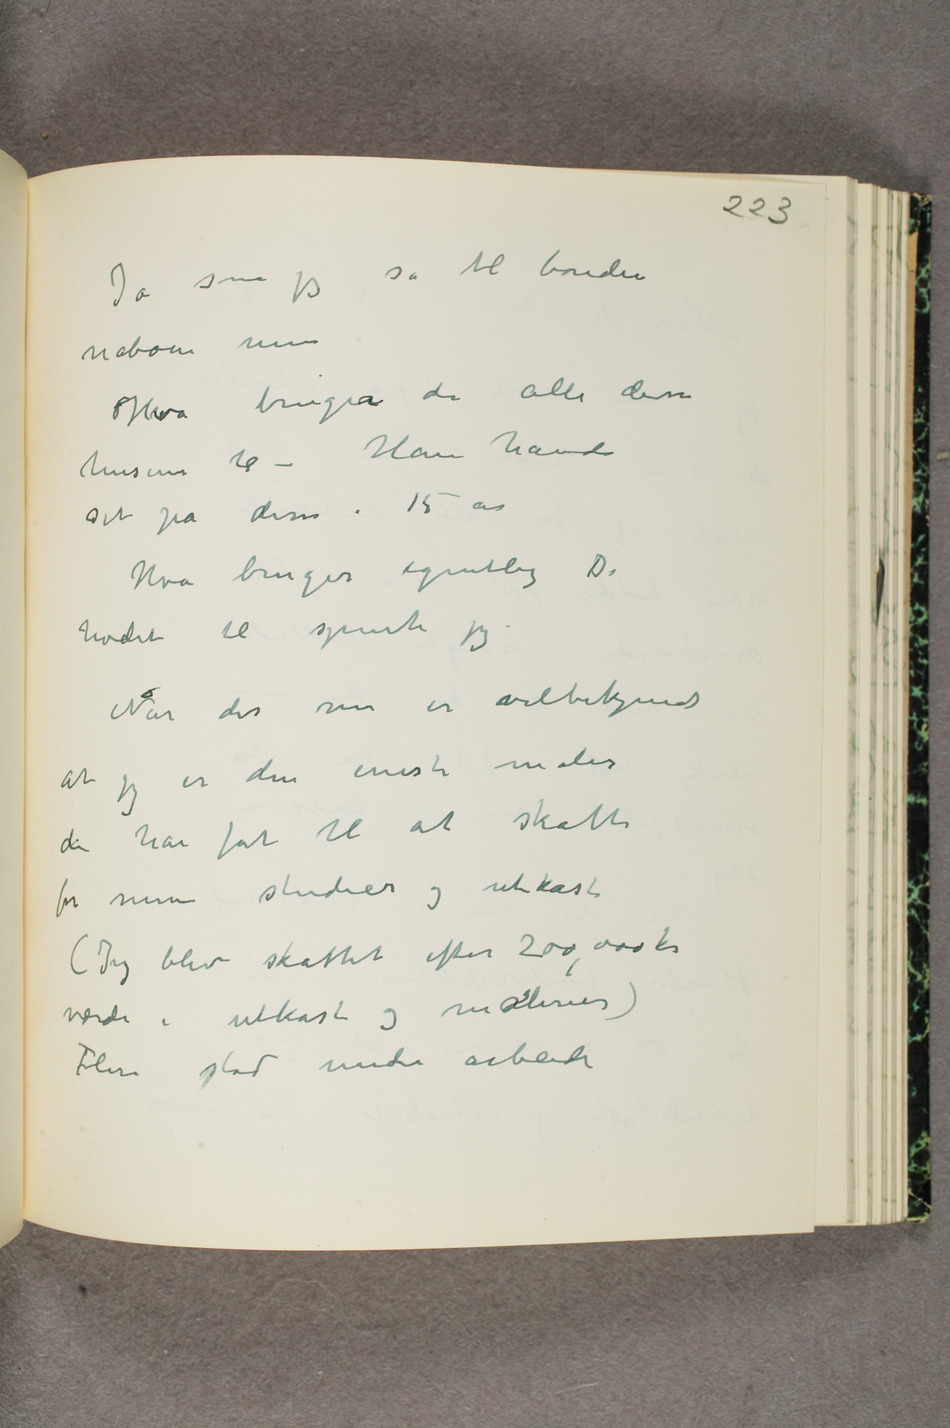 223
Ja som jeg sa til bonden
naboen min
Hva bruger de alle disse
husene til – Han havde
set på dem i 15 år
Hva bruger egentlig De
hodet til spurte jeg.
Når det nu er velbekjendt
at jeg er den eneste maler
der har fåt til at skatte
for mine studier og utkast
(Jeg blev skattet efter 200,000 kr
værdi i utkast og malerier)
Flere stod under arbeide